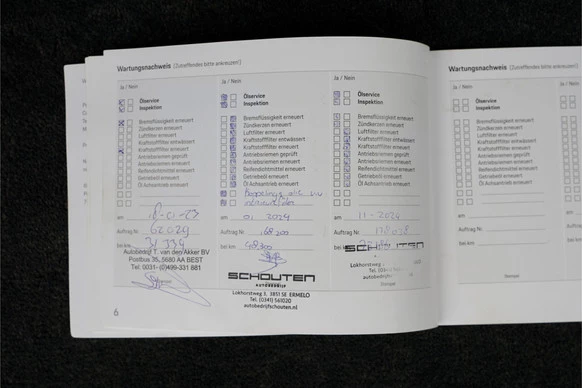 Wartungsnachweis (Zutreffendes bitte ankreuzen!)
Ja / Nein
Ölservice
Inspektion
Bremsflüssigkeit erneuert
Zündkerzen erneuert
Luftfilter erneuert
Kraftstofffilter entwässert
Kraftstofffilter erneuert
Antriebsriemen geprüft
Antriebsriemen erneuert
Reifendichtmittel erneuert
Getriebeöl erneuert
Öl Achsantrieb erneuert
am 18-01-23
Auftrag Nr. 62029
bei km 31 334
Autobedrijf T. van den Akker BV
Postbus 35, 5680 AA BEST
Tel. 0031- (0)499-331 881
6
Ja / Nein
Ölservice
Inspektion
Bremsflüssigkeit erneuert
Zündkerzen erneuert
Luftfilter erneuert
Kraftstofffilter entwässert
Kraftstofffilter erneuert
Antriebsriemen geprüft
Antriebsriemen erneuert
Reifendichtmittel erneuert
Getriebeöl erneuert
Öl Achsantrieb erneuert
am 01 2024
Auftrag Nr.
bei km
SCHOUTEN
AUTOBEDRIJF
Lokhorstweg 3, 3851 SE ERMELO
Tel. (0341) 561020
autobedrijfschouten.nl
Ja / Nein
Ölservice
Inspektion
Bremsflüssigkeit erneuert
Zündkerzen erneuert
Luftfilter erneuert
Kraftstofffilter entwässert
Kraftstofffilter erneuert
Antriebsriemen geprüft
Antriebsriemen erneuert
Reifendichtmittel erneuert
Getriebeöl erneuert
Öl Achsantrieb erneuert
am 11-2024
Auftrag Nr.
bei km
Lokhorstweg
Tel. (0341)
autobedrijf
Stempel
Wartungsnachweis (Zutreffendes bitte ankreuzen!)
Ja / Nein
Ölservice
Inspektion
Bremsflüssigkeit erneuert
Zündkerzen erneuert
Luftfilter erneuert
Kraftstofffilter entwässert
Kraftstofffilter erneuert
Antriebsriemen geprüft
Antriebsriemen erneuert
Reifendichtmittel erneuert
Getriebeöl erneuert
Öl Achsantrieb erneuert
am
Auftrag Nr.
bei km
Stempel